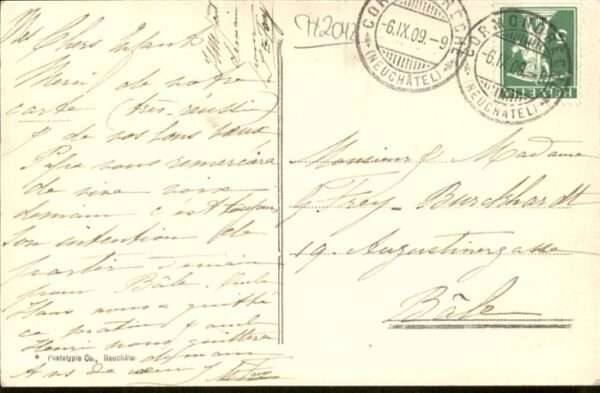 Mes Chers Enfants
Merci de votre
carte (très réussi)
& de vos bons vœux
Papa vous remerciera
de vive voix
demain c'est toujours
son intention de
partir demain
pour Bâle.
Hans nous a quitté
ce matin &
Henri nous quittera
* Phototypie Co., Neuchâtel
CORMONDRÈCHE
-6.IX.09.-9
(NEUCHÂTEL)
CORMONDRÈCHE
-6.IX.09.-
(NEUCHÂTEL)
HELVETIA
Monsieur & Madame
Frey-Burckhardt
19. Augustinergasse
Bâle